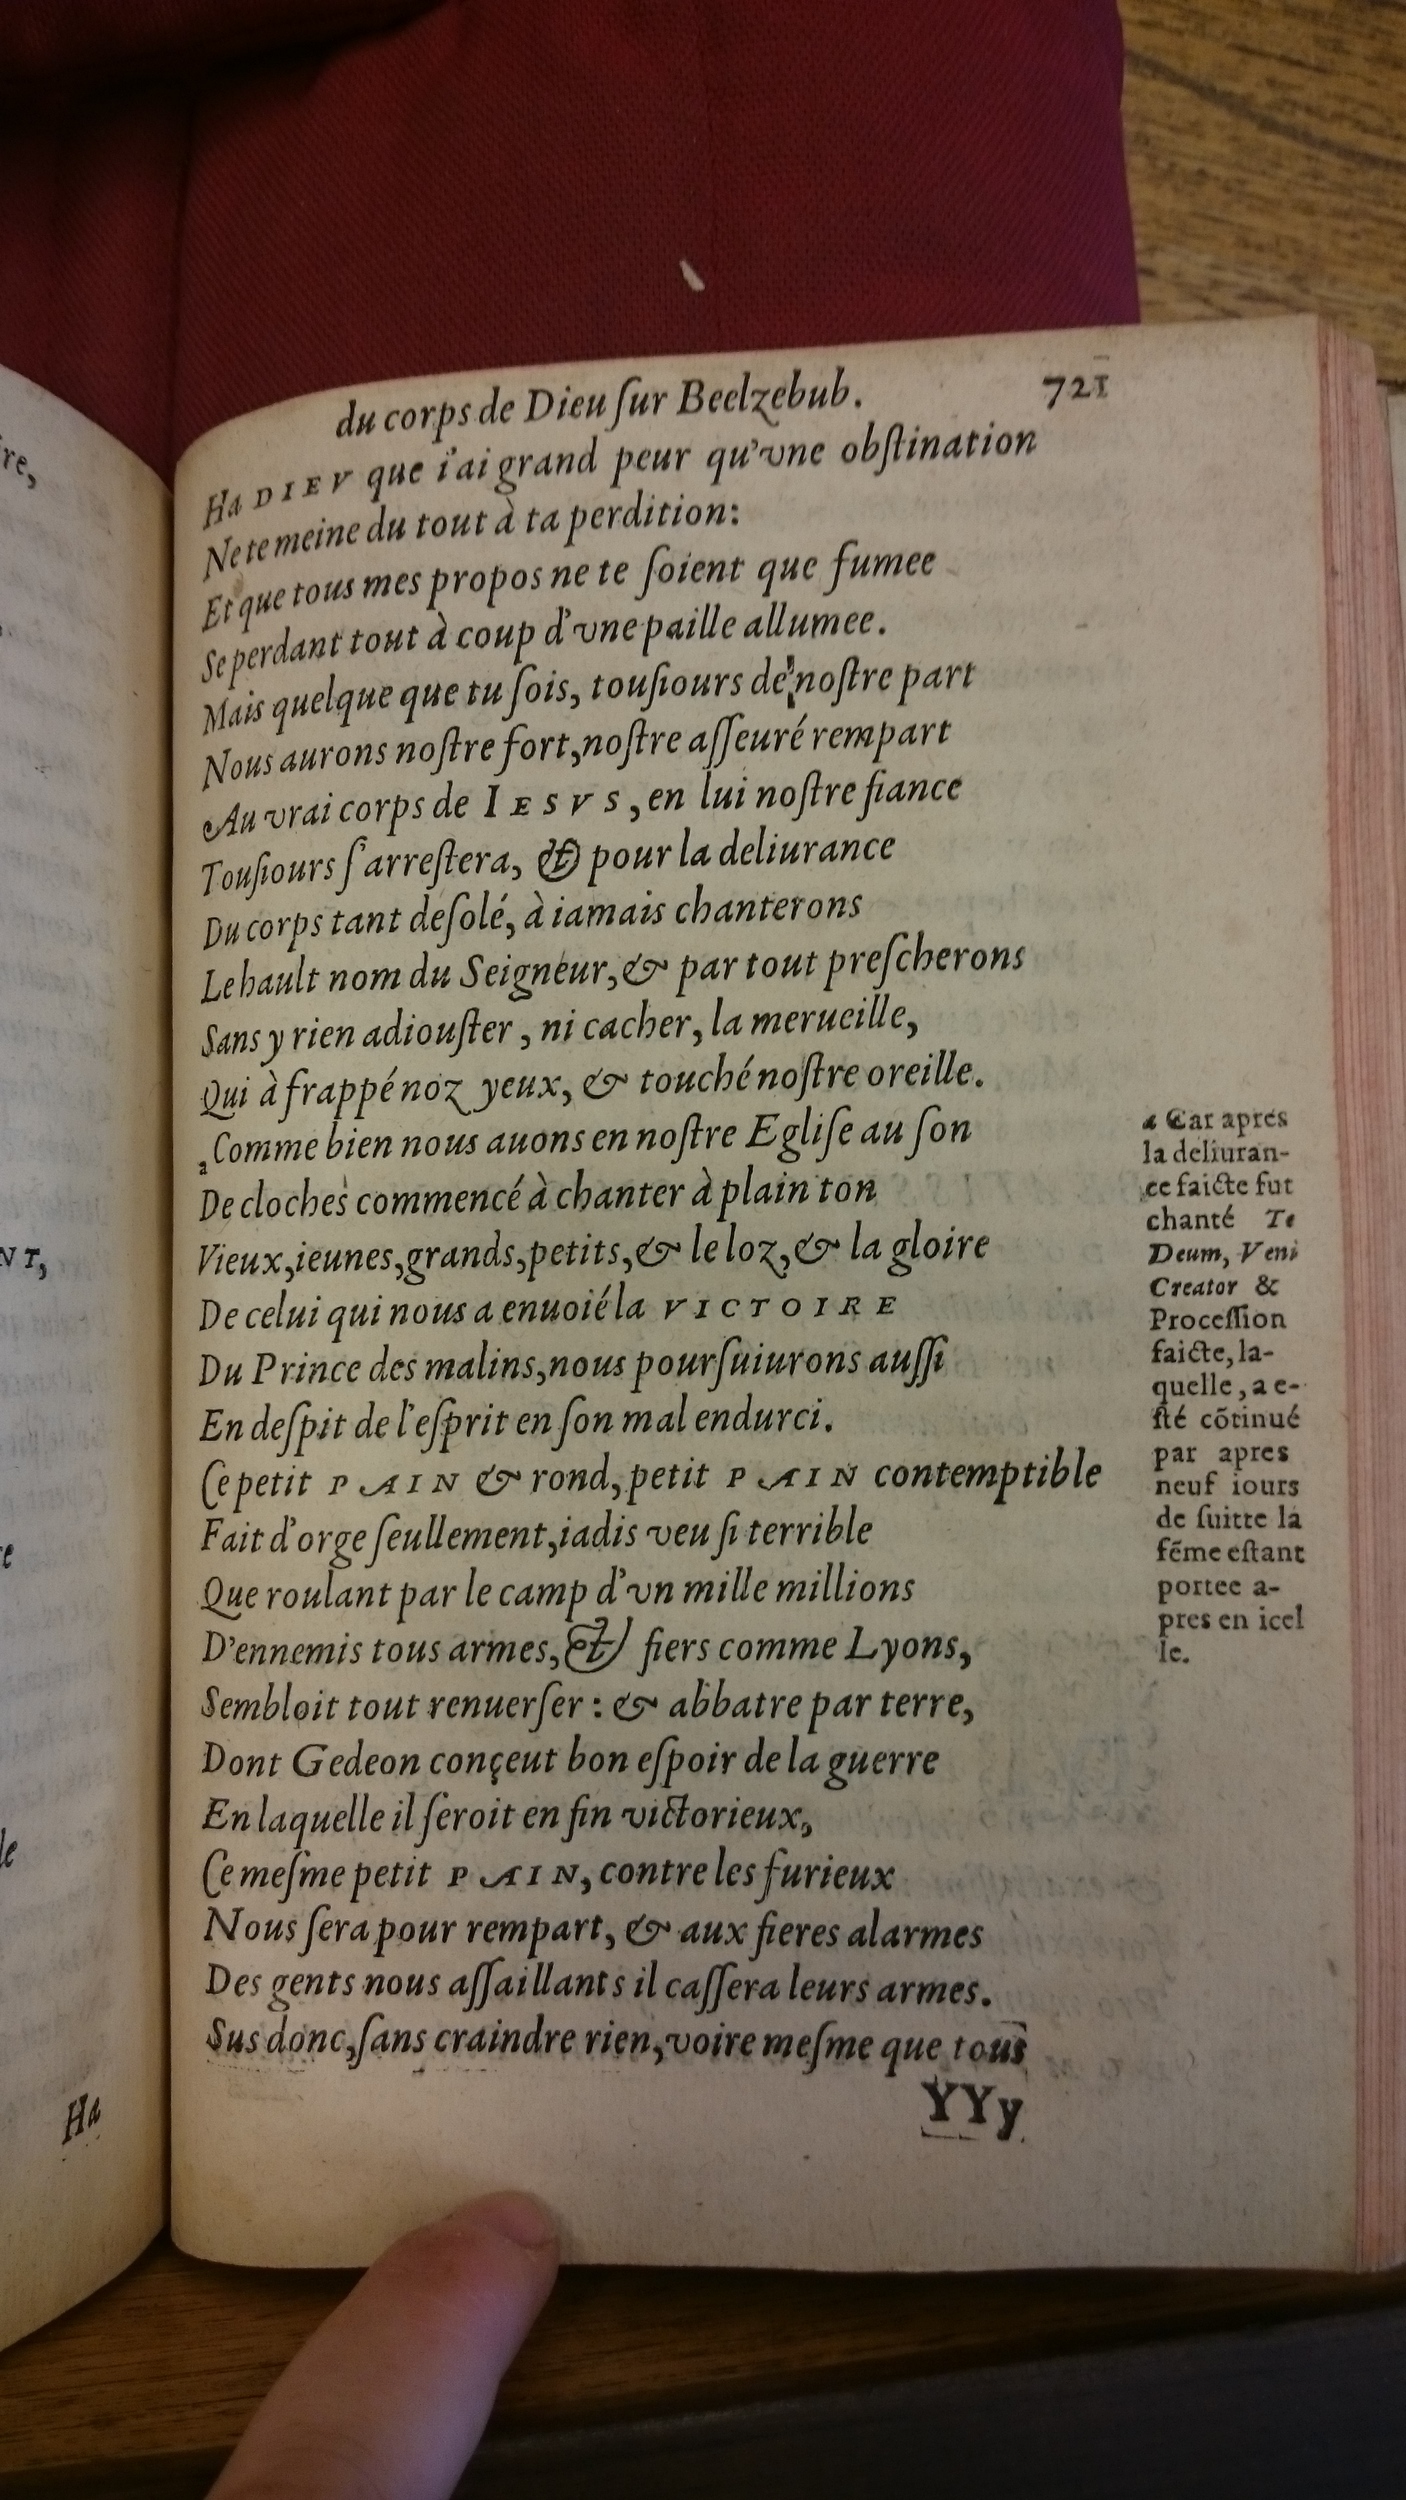 du corps de Dieu ſur Beelzebub. 721
Ha DIEV que i'ai grand peur qu'vne obſtination
Ne te meine du tout à ta perdition:
Et que tous mes propos ne te ſoient que fumee
Se perdant tout à coup d'vne paille allumee.
Mais quelque que tu ſois, touſiours de noſtre part
Nous aurons noſtre fort, noſtre aſſeuré rempart
Au vrai corps de IESVS, en lui noſtre fiance
Touſiours ſ'arreſtera, & pour la deliurance
Du corps tant deſolé, à iamais chanterons
Le hault nom du Seigneur, & par tout preſcherons
Sans y rien adiouſter, ni cacher, la merueille,
Qui à frappé noz yeux, & touché noſtre oreille.
a Comme bien nous auons en noſtre Egliſe au ſon
De cloches commencé à chanter à plain ton
Vieux, ieunes, grands, petits, & le loz, & la gloire
De celui qui nous a enuoié la VICTOIRE
Du Prince des malins, nous pourſuiurons auſſi
En deſpit de l'eſprit en ſon mal endurci.
Ce petit PAIN & rond, petit PAIN contemptible
Fait d'orge ſeullement, iadis veu ſi terrible
Que roulant par le camp d'vn mille millions
D'ennemis tous armes, & fiers comme Lyons,
Sembloit tout renuerſer: & abbatre par terre,
Dont Gedeon conçeut bon eſpoir de la guerre
En laquelle il ſeroit en fin victorieux,
Ce meſme petit PAIN, contre les furieux
Nous ſera pour rempart, & aux fieres alarmes
Des gents nous aſſaillants il caſſera leurs armes.
Sus donc, ſans craindre rien, voire meſme que tous
YYy
a Car apres
la deliuran-
ce faicte fut
chanté Te
Deum, Veni
Creator &
Proceſſion
faicte, la-
quelle, a e-
ſté cõtinué
par apres
neuf iours
de ſuitte la
fẽme eſtant
portee a-
pres en icel
le.
NT,
Ha